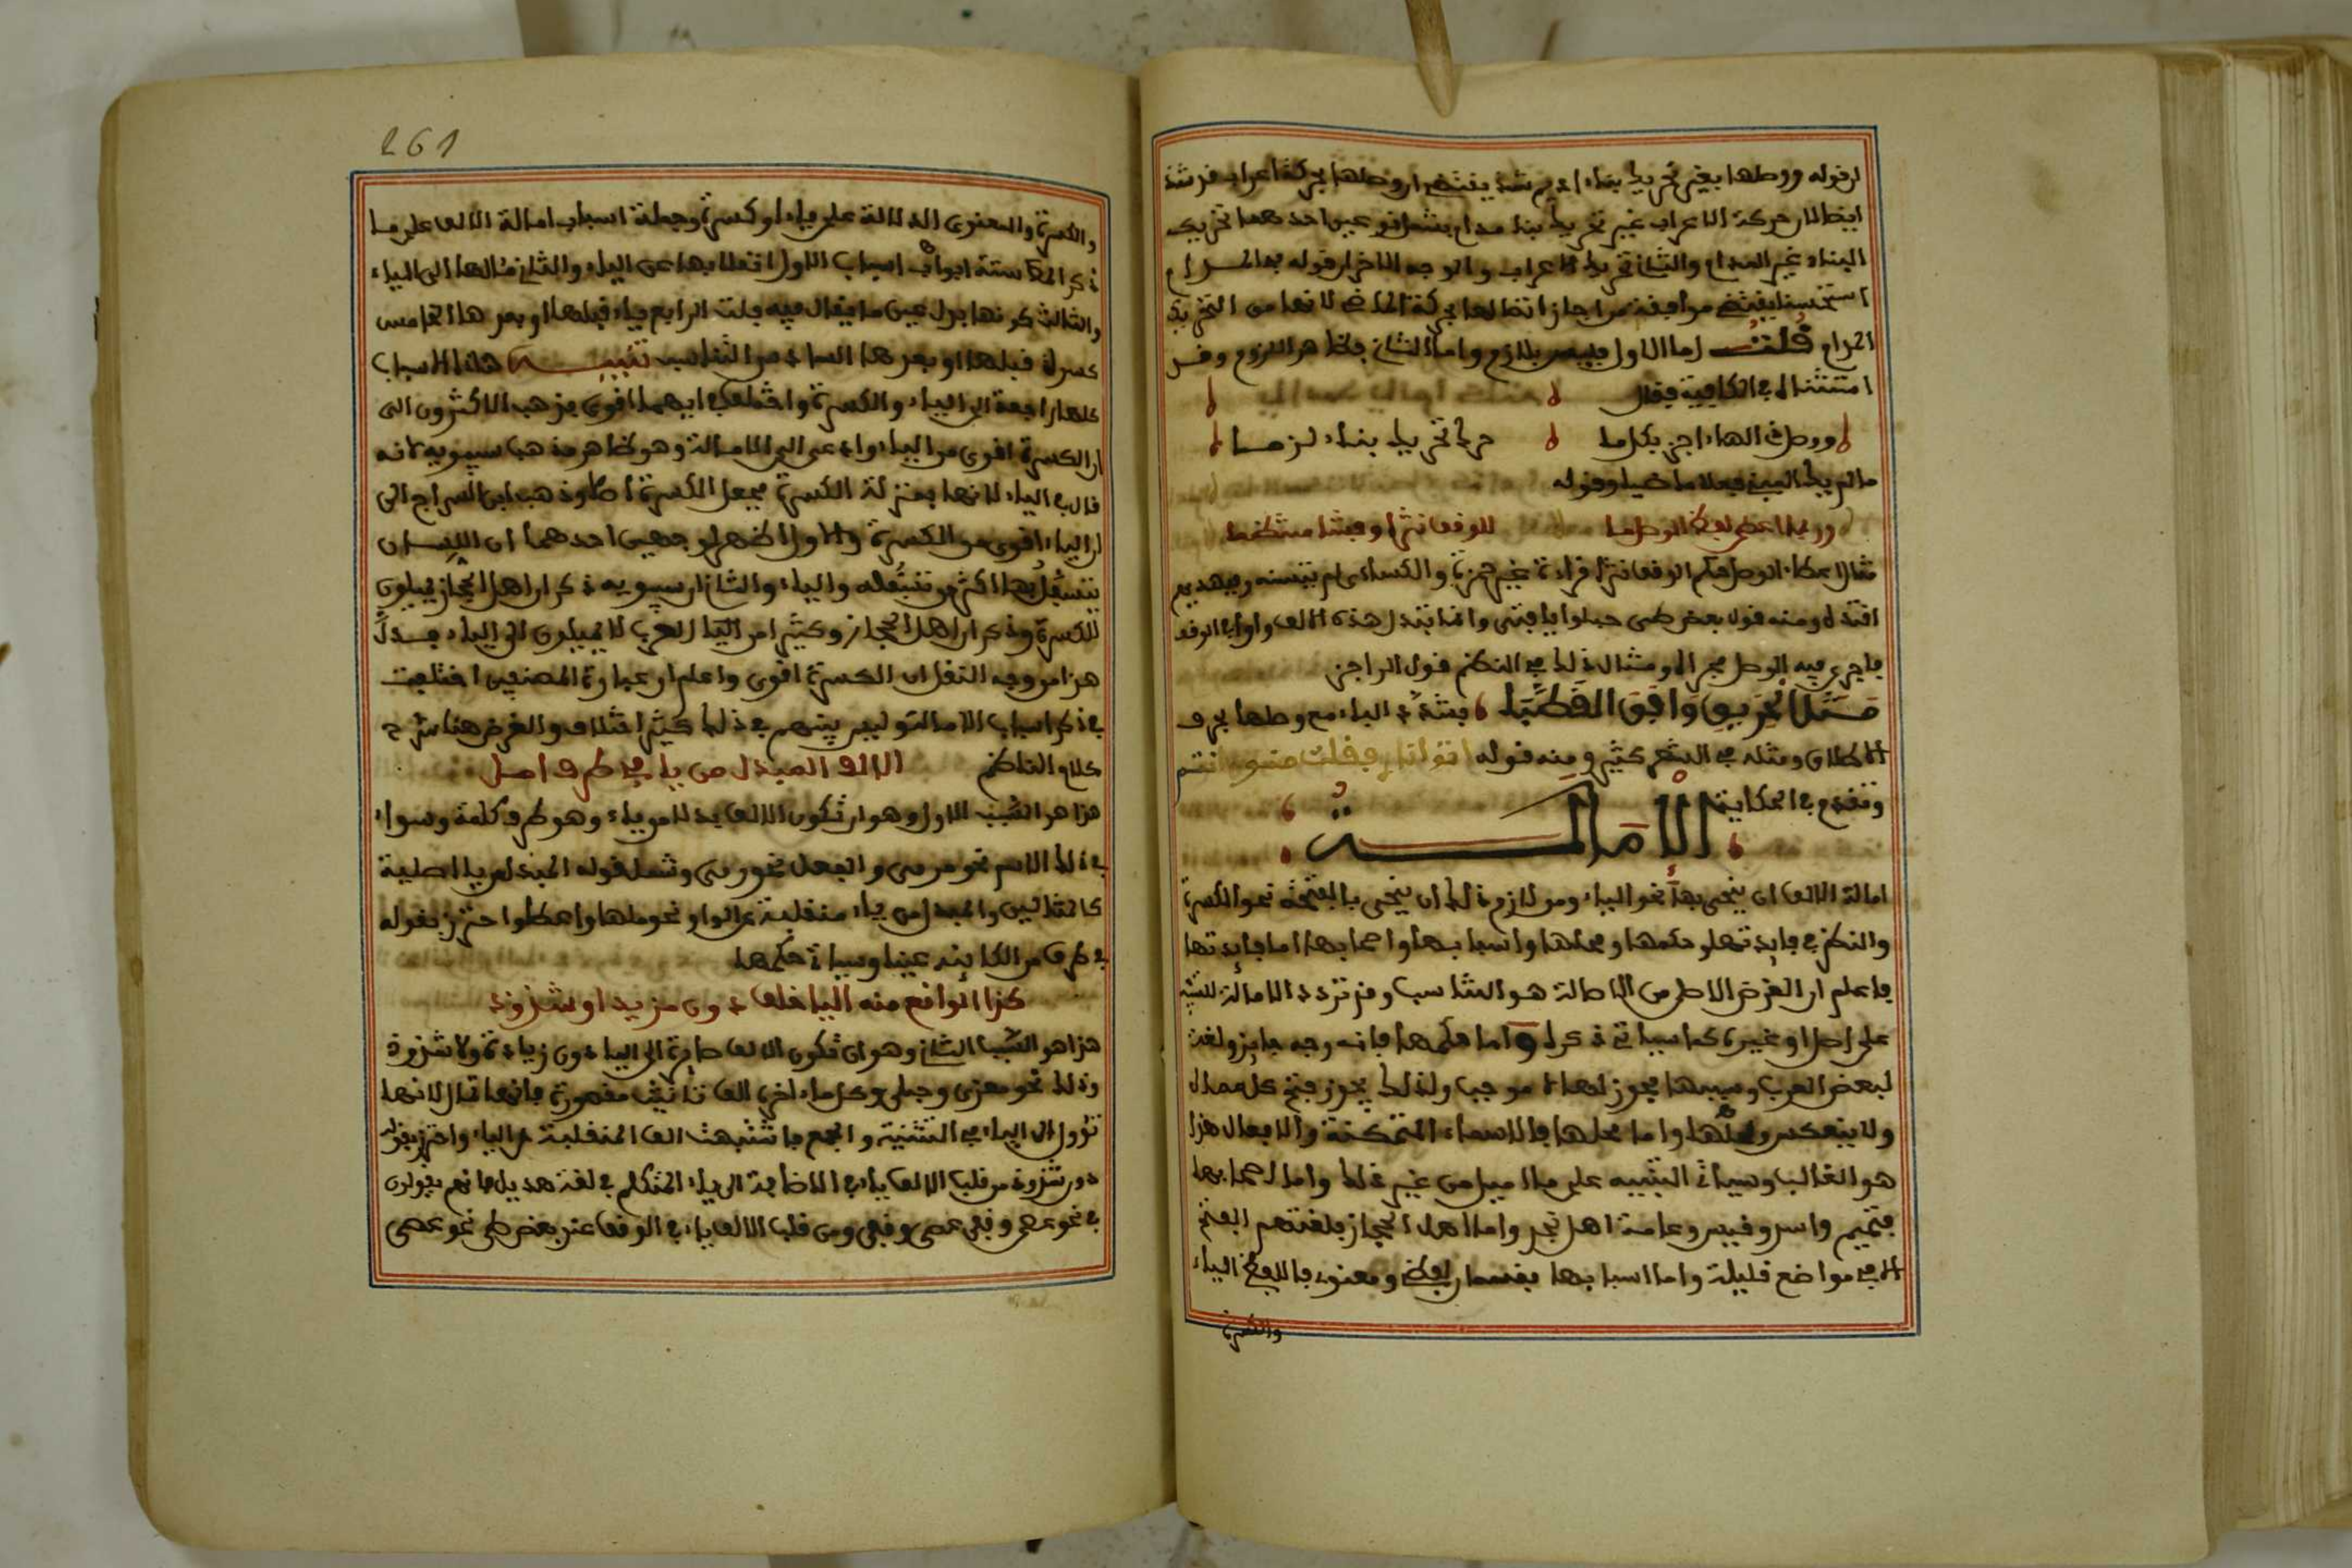 ان قوله ووصلها بغير تحريك بناء اديم شذ يقتضى ان وصلها بحركة اعراب قد شذ
ايضا لان حركة الاعراب غير تحريك بناء مدام بشمل نوعين احدهما تحريك
البناء غير المدام والثانى تحريك الاعراب والوجه الاخر ان قوله فى المدام
استحسنا يقتضى موافقة من اجاز اتصالها بحركة الماضى لانها من التحريك
المدام قلت اما الاول فليس بلازم واما الثانى فظاهر اللزوم وقد
استثناه فى الكافية فقال
ووصل ذى الهاء اجز بكل ما حرك تحريك بناء لزما
ما لم يك المبنى فعلا ماضيا وقوله
وربما اعطى لفظ الوصل ما للوقف نثرا وفشا منتظما
مثال اعطاء الوصل حكم الوقف نثرا قراءة غير حمزة والكساءى لم يتسنه وفبهديهم
اقتده ومنه قول بعض طيى حبلوا يا فتى وانما تبدل هذه الالف واوا فى الوقف
فاجرى فيه الوصل مجراه ومثال ذلك فى النظم قول الراجز
مثل الحريق وافق القصبا فشدد الباء مع وصلها بحرف
الاطلاق ومثله فى الشعر كثير ومنه قوله اتوا نارى فقلت منون انتم
وتقدم فى الحكاية
الامالة
امالة الالف ان ينحى بها نحو الياء ومن لازم ذلك ان ينحى بالفتحة نحو الكسرة
والنظر فى فايدتها وحكمها ومحلها واسبابها واصحابها اما فايدتها
فاعلم ان الغرض الاصلى من الامالة هو التناسب وقد ترد الامالة للتنبيه
على اصل او غيره كما سياتى ذكره واما حكمها فانه وجه جايز ولغة
لبعض العرب وسببها يجوز لها لا موجب ولذلك يجوز فتح كل ممال
ولا ينعكس واما محلها فالاسماء المتمكنة والافعال هذا
هو الغالب وسياتى التنبيه على ما اميل من غير ذلك واما اصحابها
فتميم واسد وقيس وعامة اهل نجد واما اهل الحجاز فلغتهم الفتح
الا فى مواضع قليلة واما اسبابها فقسمان لفظى ومعنوى فاللفظى الياء
والكسرة
261
والكسرة والمعنوى الدلالة على ياء او كسرة وجملة اسباب امالة الالف على ما
ذكر المص ستة اسباب الاول انقلابها عن الياء والثانى مئالها الى الياء
والثالث كونها بدل عين ما يقال فيه فلت الرابع ياء قبلها او بعدها الخامس
كسرة قبلها او بعدها السادس التناسب تنبيه هذه الاسباب
كلها راجعة الى الياء والكسرة واختلف فى ايهما اقوى فذهب الاكثرون الى
ان الكسرة اقوى من الياء وادعى الى الامالة وهو ظاهر مذهب سيبويه لانه
قال فى الياء لانها بمنزلة الكسرة فجعل الكسرة اصلا وذهب ابن السراج الى
ان الياء اقوى من الكسرة والاول اظهر لوجهين احدهما ان اللسان
يتسفل بها اكثر من تسفله بالياء والثانى ان سيبويه ذكر ان اهل الحجاز يميلون
للكسرة وذكر ان اهل الحجاز وكثيرا من العرب لا يميلون الى الياء فدل
هذا من وجه النقل ان الكسرة اقوى واعلم ان عبارة المصنفين اختلفت
فى ذكر اسباب الامالة وليس بينهم فى ذلك كثير اختلاف والغرض هنا شرح
كلام الناظم الالف المبدل من يا فى طرف امل
هذا هو السبب الاول وهو ان تكون الالف بدلا من ياء وهو طرف كلمة وسواء
فى ذلك الاسم نحو مرمى والفعل نحو رمى وشمل قوله المبدل من يا اصلية
كالمثالين والمبدل من ياء منقلبة عن الواو نحو ملهى واعطى واحترز بقوله
فى طرف من الكاينة عينا وسياتى حكمها
كذا الواقع منه اليا خلف دون مزيد او شذوذ
هذا هو السبب الثانى وهو ان تكون الالف صايرة الى الياء دون زيادة ولا شذوذ
وذلك نحو معزى وحبلى وكل ما اخره الف تانيث مقصورة فانها تمال لانها
تؤول الى الياء فى التثنية والجمع فاشبهت الف المنقلبة عن الياء واحترز بقوله
دون شذوذ من قلب الالف ياء فى الاضافة الى ياء المتكلم فى لغة هذيل فانهم يقولون
فى نحو عصى وقفى عصى وقفى ومن قلب الالف ياء فى الوقف عند بعض طى نحو عصى